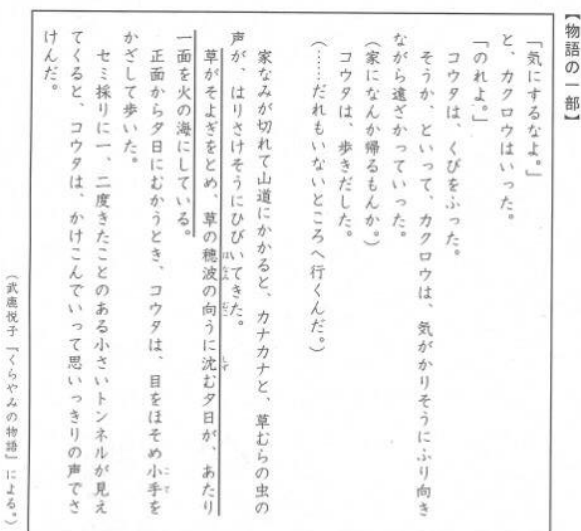 【物語の一部】
「気にするなよ。」
と、カクロウはいった。
「のれよ。」
コウタは、くびをふった。
そうか、といって、カクロウは、気がかりそうにふり向き
ながら遠ざかっていった。
(家になんか帰るもんか。)
コウタは、歩きだした。
(……だれもいないところへ行くんだ。)
家なみが切れて山道にかかると、カナカナと、草むらの虫の
声が、はりさけそうにひびいてきた。
草がそよぎをとめ、草の穂波の向うに沈む夕日が、あたり
一面を火の海にしている。
正面から夕日にむかうとき、コウタは、目をほそめ小手を
かざして歩いた。
セミ採りに一、二度きたことのある小さいトンネルが見え
てくると、コウタは、かけこんでいって思いっきりの声でさ
けんだ。
(武鹿悦子「くらやみの物語」による。)